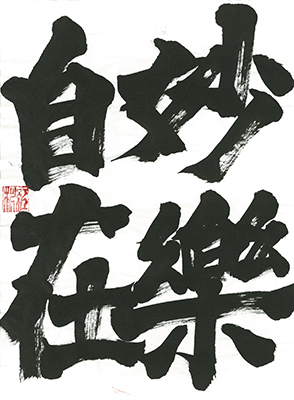 妙樂
自在